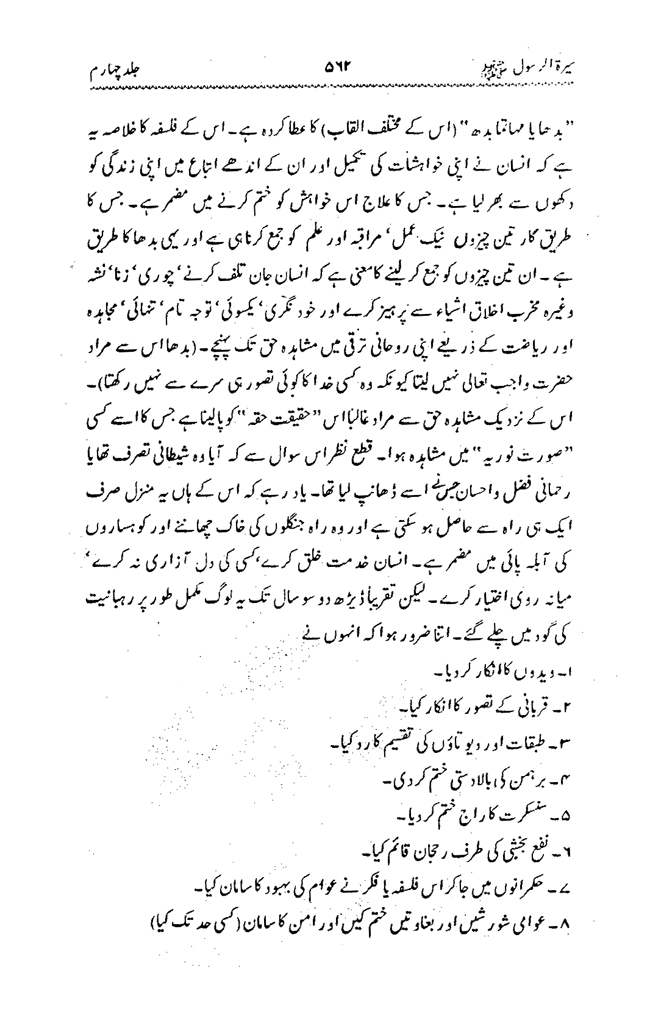 سیرۃ الرسول ﷺ ۵۶۲ جلد چہارم
”بدھا یا مہاتما بدھ“ (اس کے مختلف القاب) کا عطا کردہ ہے۔ اس کے فلسفہ کا خلاصہ یہ
ہے کہ انسان نے اپنی خواہشات کی تکمیل اور ان کے اندھے اتباع میں اپنی زندگی کو
دکھوں سے بھر لیا ہے۔ جس کا علاج اس خواہش کو ختم کرنے میں مضمر ہے۔ جس کا
طریق کار تین چیزوں نیک عمل‘ مراقبہ اور علم کو جمع کرنا ہی ہے اور یہی بدھا کا طریق
ہے۔ ان تین چیزوں کو جمع کر لینے کا معنی ہے کہ انسان جان تلف کرنے‘ چوری‘ زنا‘ نشہ
وغیرہ مخرب اخلاق اشیاء سے پرہیز کرے اور خود نگری‘ یکسوئی‘ توجہ تام‘ تنہائی‘ مجاہدہ
اور ریاضت کے ذریعے اپنی روحانی ترقی میں مشاہدہ حق تک پہنچے۔ (بدھا اس سے مراد
حضرت واجب تعالی نہیں لیتا کیونکہ وہ کسی خدا کا کوئی تصور ہی سرے سے نہیں رکھتا)۔
اس کے نزدیک مشاہدہ حق سے مراد غالبًا اس ”حقیقت حقہ“ کو پالینا ہے جس کا اسے کسی
”صورت نوریہ“ میں مشاہدہ ہوا۔ قطع نظر اس سوال سے کہ آیا وہ شیطانی تصرف تھا یا
رحمانی فضل و احسان جس نے اسے ڈھانپ لیا تھا۔ یاد رہے کہ اس کے ہاں یہ منزل صرف
ایک ہی راہ سے حاصل ہو سکتی ہے اور وہ راہ جنگلوں کی خاک چھاننے اور کوہساروں
کی آبلہ پائی میں مضمر ہے۔ انسان خدمت خلق کرے‘ کسی کی دل آزاری نہ کرے‘
میانہ روی اختیار کرے۔ لیکن تقریباً ڈیڑھ دو سو سال تک یہ لوگ مکمل طور پر رہبانیت
کی گود میں چلے گئے۔ اتنا ضرور ہوا کہ انہوں نے
۱۔ ویدوں کا انکار کر دیا۔
۲۔ قربانی کے تصور کا انکار کیا۔
۳۔ طبقات اور دیوتاؤں کی تقسیم کا رد کیا۔
۴۔ برہمن کی بالادستی ختم کر دی۔
۵۔ سنسکرت کا راج ختم کر دیا۔
۶۔ نفع بخشی کی طرف رحجان قائم کیا۔
۷۔ حکمرانوں میں جا کر اس فلسفہ یا فکر نے عوام کی بہبود کا سامان کیا۔
۸۔ عوامی شورشیں اور بغاوتیں ختم کیں اور امن کا سامان (کسی حد تک کیا)